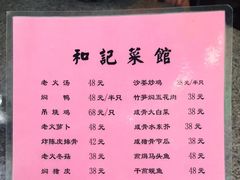 和記菜館
老火汤 48元 沙姜炒鸡 元/半只
焖鸭 48元/半只 竹笋焖五花肉 38元
吊烧鸡 68元/只 咸骨大白菜 38元
老火萝卜 48元 咸骨水东芥 38元
炸陈皮排骨 42元 咸猪骨节瓜 38元
老火冬菇 38元 煎焗马头鱼 48元
焖猪皮 38元 干煎鲵鱼 48元